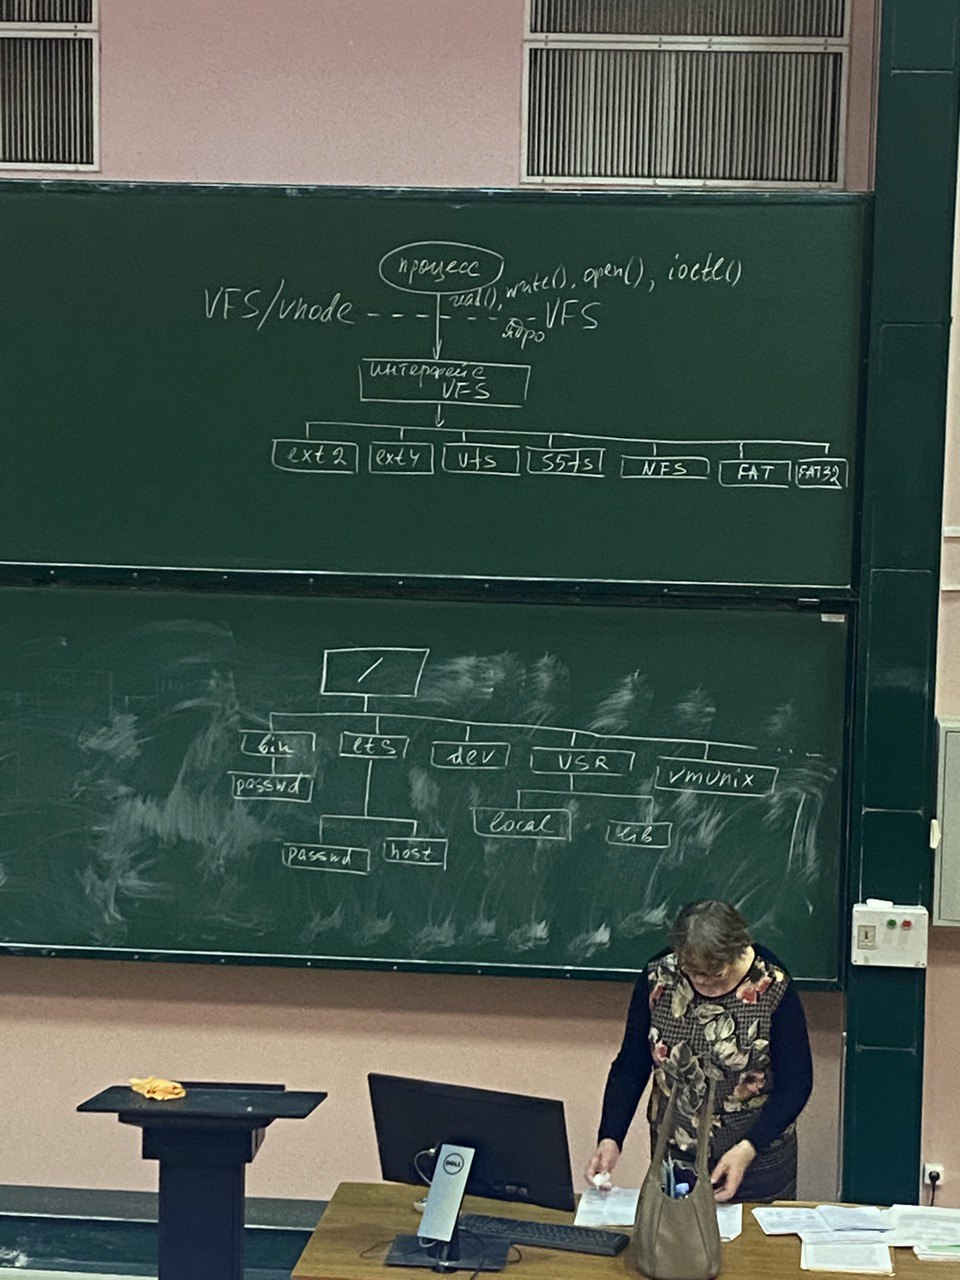 процесс
read(), write(), open(), ioctl()
VFS/vnode VFS
ядро
интерфейс
VFS
ext2 ext4 Ufs S5fs NFS FAT FAT32
/
bin ets dev USR vmunix ...
passwd
local lib
passwd host
DELL